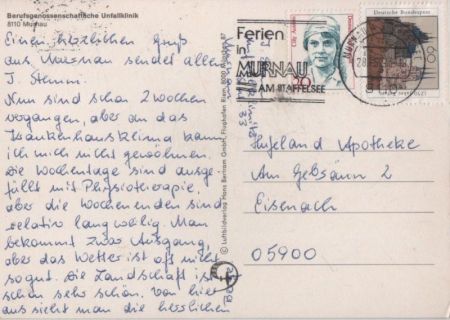 Berufsgenossenschaftliche Unfallklinik
8110 Murnau
Einen herzlichen Gruß
aus Murnau sendet allen
J. Stumm.
Nun sind schon 2 Wochen
vergangen, aber an das
Krankenhausklima kann
ich mich nicht gewöhnen.
Die Wochentage sind ausge
füllt mit Physiotherapie,
aber die Wochenenden sind
relativ langweilig. Man
bekommt zwar Ausgang,
aber das Wetter ist oft nicht
so gut. Die Landschaft ist
schon sehr schön. Von hier
aus sieht man die herrlichen
© Luftbildverlag Hans Bertram GmbH, Flughafen Riem, 8000 München 87
Ferien
in
MURNAU
AM STAFFELSEE
Deutsche Bundespost
100
Hufeland Apotheke
Am Gebräun 2
Eisenach
05900